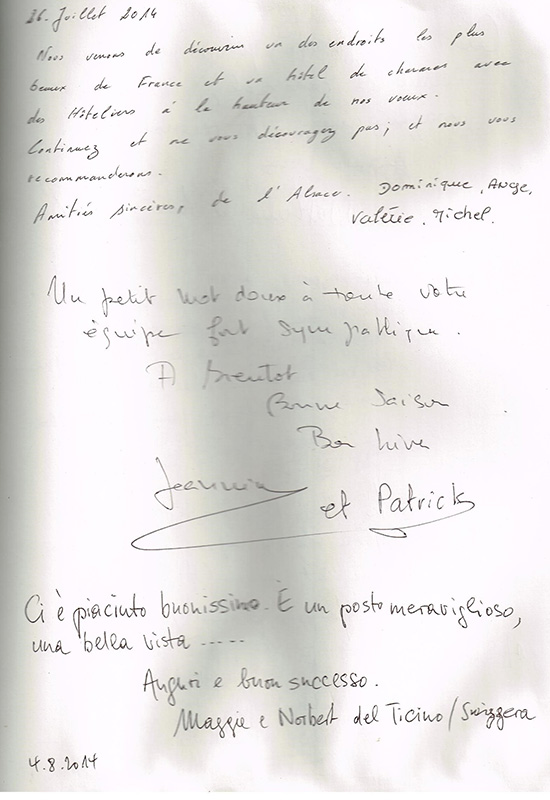 26. Juillet 2014
Nous venons de découvrir un des endroits les plus
beaux de France et un hôtel de charme avec
des Hôteliers à la hauteur de nos voeux.
Continuez et ne vous découragez pas, et nous vous
recommanderons.
Amitiés sincères, de l'Alsace. Dominique, Ange,
Valérie, Michel.
Un petit mot doux à toute votre
équipe fort sympathique.
A bientôt
Bonne Saison
Bon hiver
Jeannine
et Patrick
Ci è piaciuto buonissimo. È un posto meraviglioso,
una bella vista .....
Auguri e buon successo.
Maggie e Norbert del Ticino/Svizzera
4.8.2014